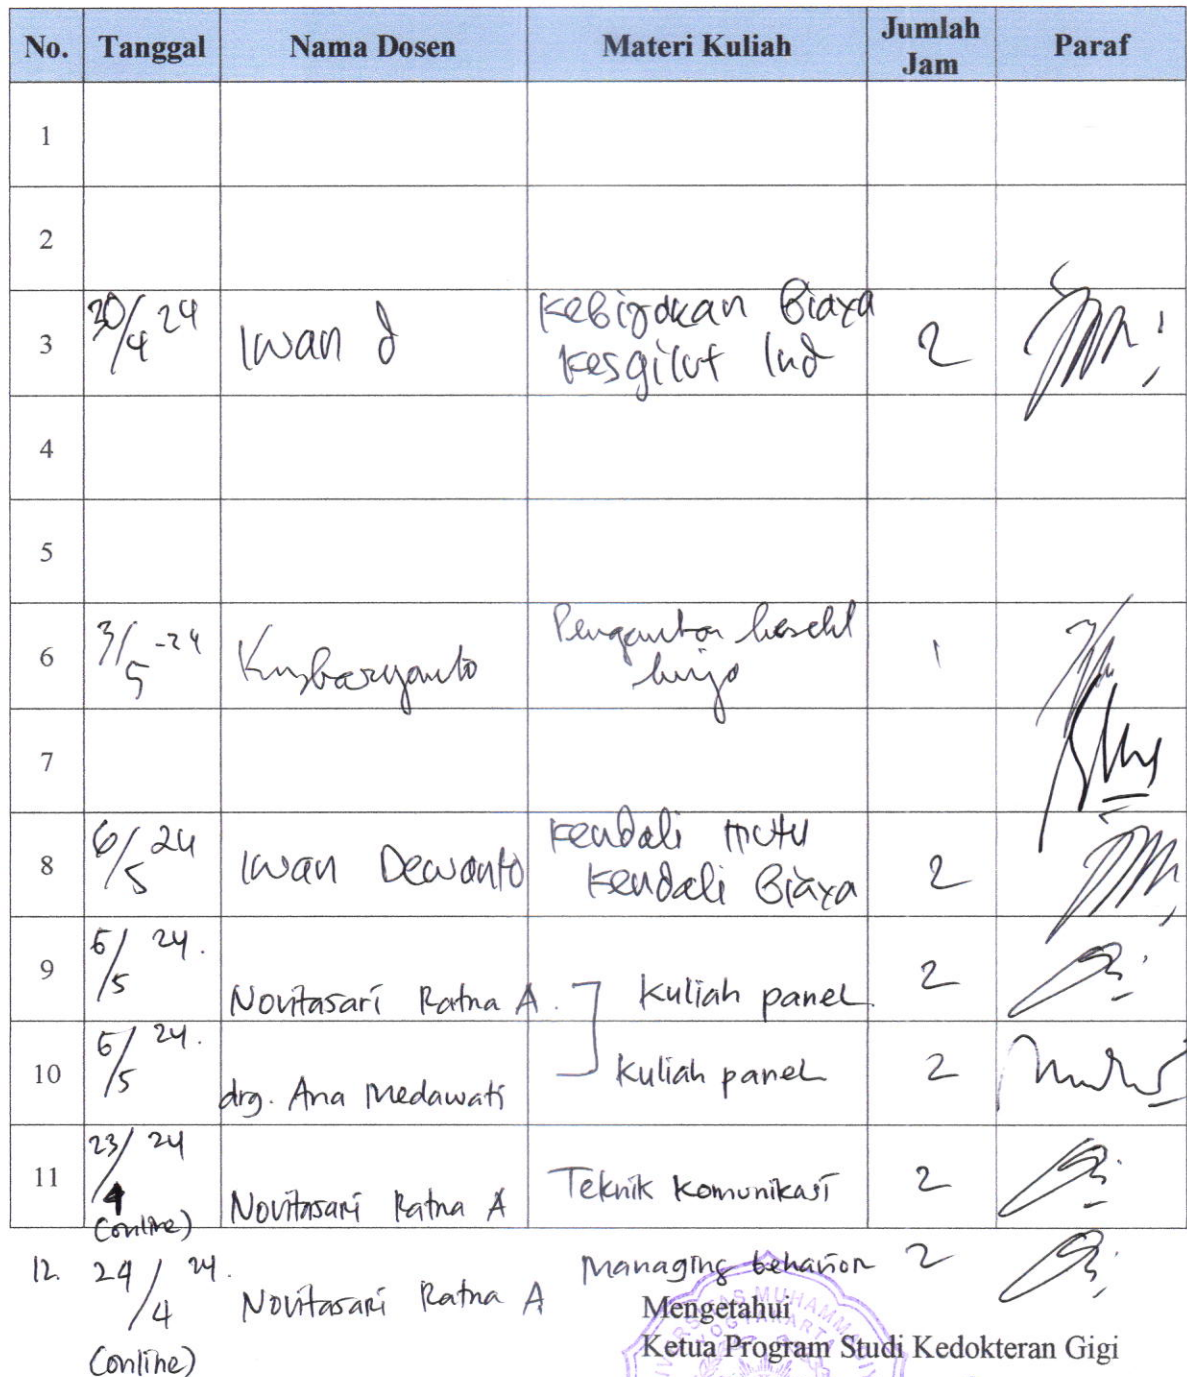 No. Tanggal Nama Dosen Materi Kuliah Jumlah Jam Paraf
1
2
3 30/4 24 Iwan D Kebijakan Biaya Kesgilut Ind 2
4
5
6 3/5-24 Kusbaryanto Pengantar 1
7
8 6/5 24 Iwan Dewanto Kendali Mutu Kendali Biaya 2
9 6/5 24. Novitasari Ratna A. Kuliah panel. 2
10 6/5 24. drg. Ana Medawati Kuliah panel 2
11 23/4 24 (online) Novitasari Ratna A Teknik Komunikasi 2
12. 24/4 24. (online) Novitasari Ratna A Managing behavior 2
Mengetahui
Ketua Program Studi Kedokteran Gigi